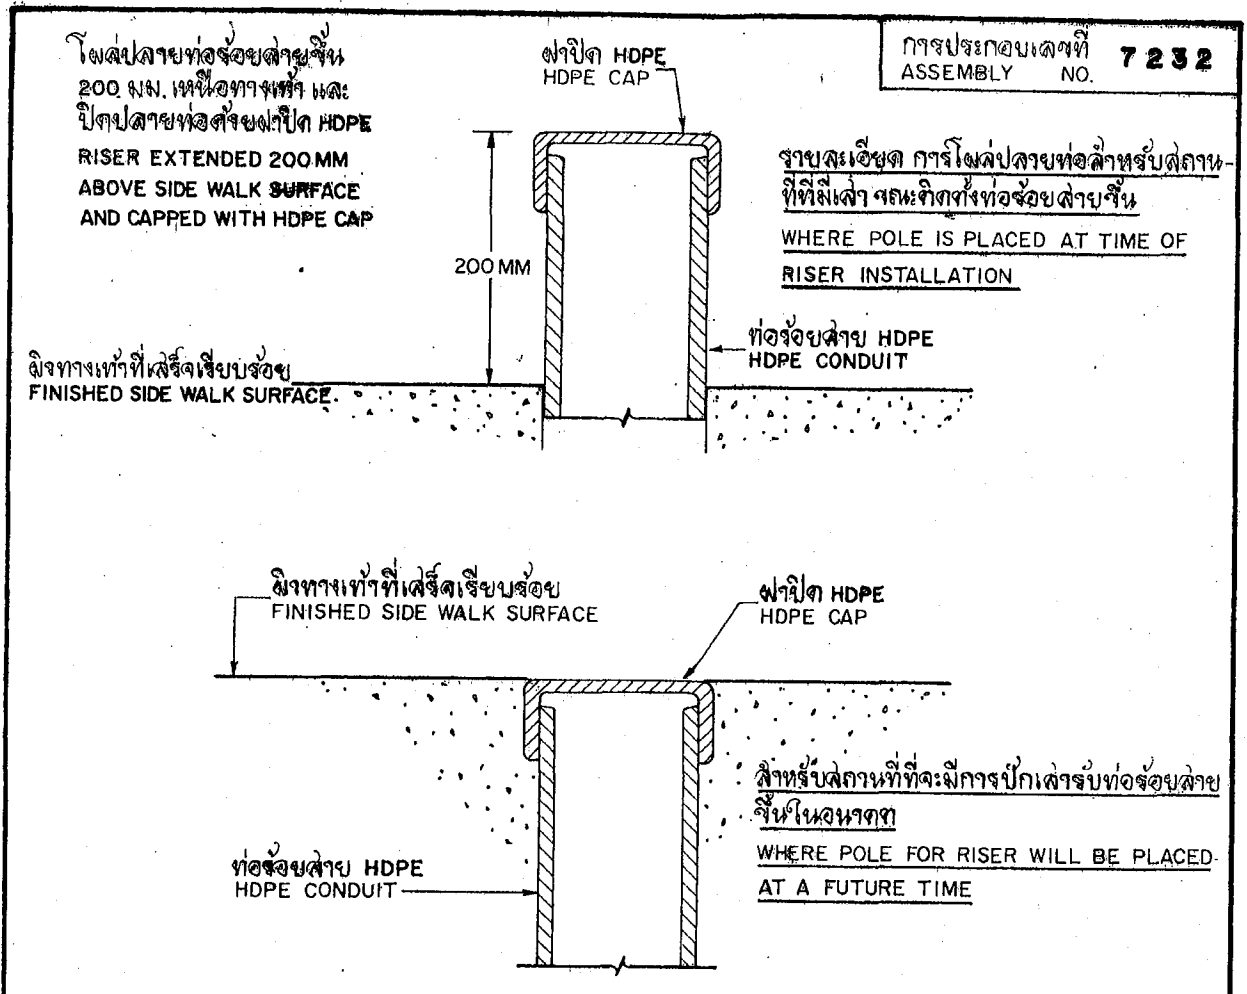 โผล่ปลายท่อร้อยสายขึ้น
200 มม. เหนือทางเท้า และ
ปิดปลายท่อด้วยฝาปิด HDPE
RISER EXTENDED 200 MM
ABOVE SIDE WALK SURFACE
AND CAPPED WITH HDPE CAP
ฝาปิด HDPE
HDPE CAP
การประกอบเลขที่ 7232
ASSEMBLY NO.
รายละเอียด การโผล่ปลายท่อสำหรับสถาน-
ที่ที่มีเสา ขณะติดตั้งท่อร้อยสายขึ้น
WHERE POLE IS PLACED AT TIME OF
RISER INSTALLATION
200 MM
ท่อร้อยสาย HDPE
HDPE CONDUIT
ผิวทางเท้าที่เสร็จเรียบร้อย
FINISHED SIDE WALK SURFACE.
ผิวทางเท้าที่เสร็จเรียบร้อย
FINISHED SIDE WALK SURFACE
ฝาปิด HDPE
HDPE CAP
สำหรับสถานที่ที่จะมีการปักเสารับท่อร้อยสาย
ขึ้นในอนาคต
WHERE POLE FOR RISER WILL BE PLACED
AT A FUTURE TIME
ท่อร้อยสาย HDPE
HDPE CONDUIT